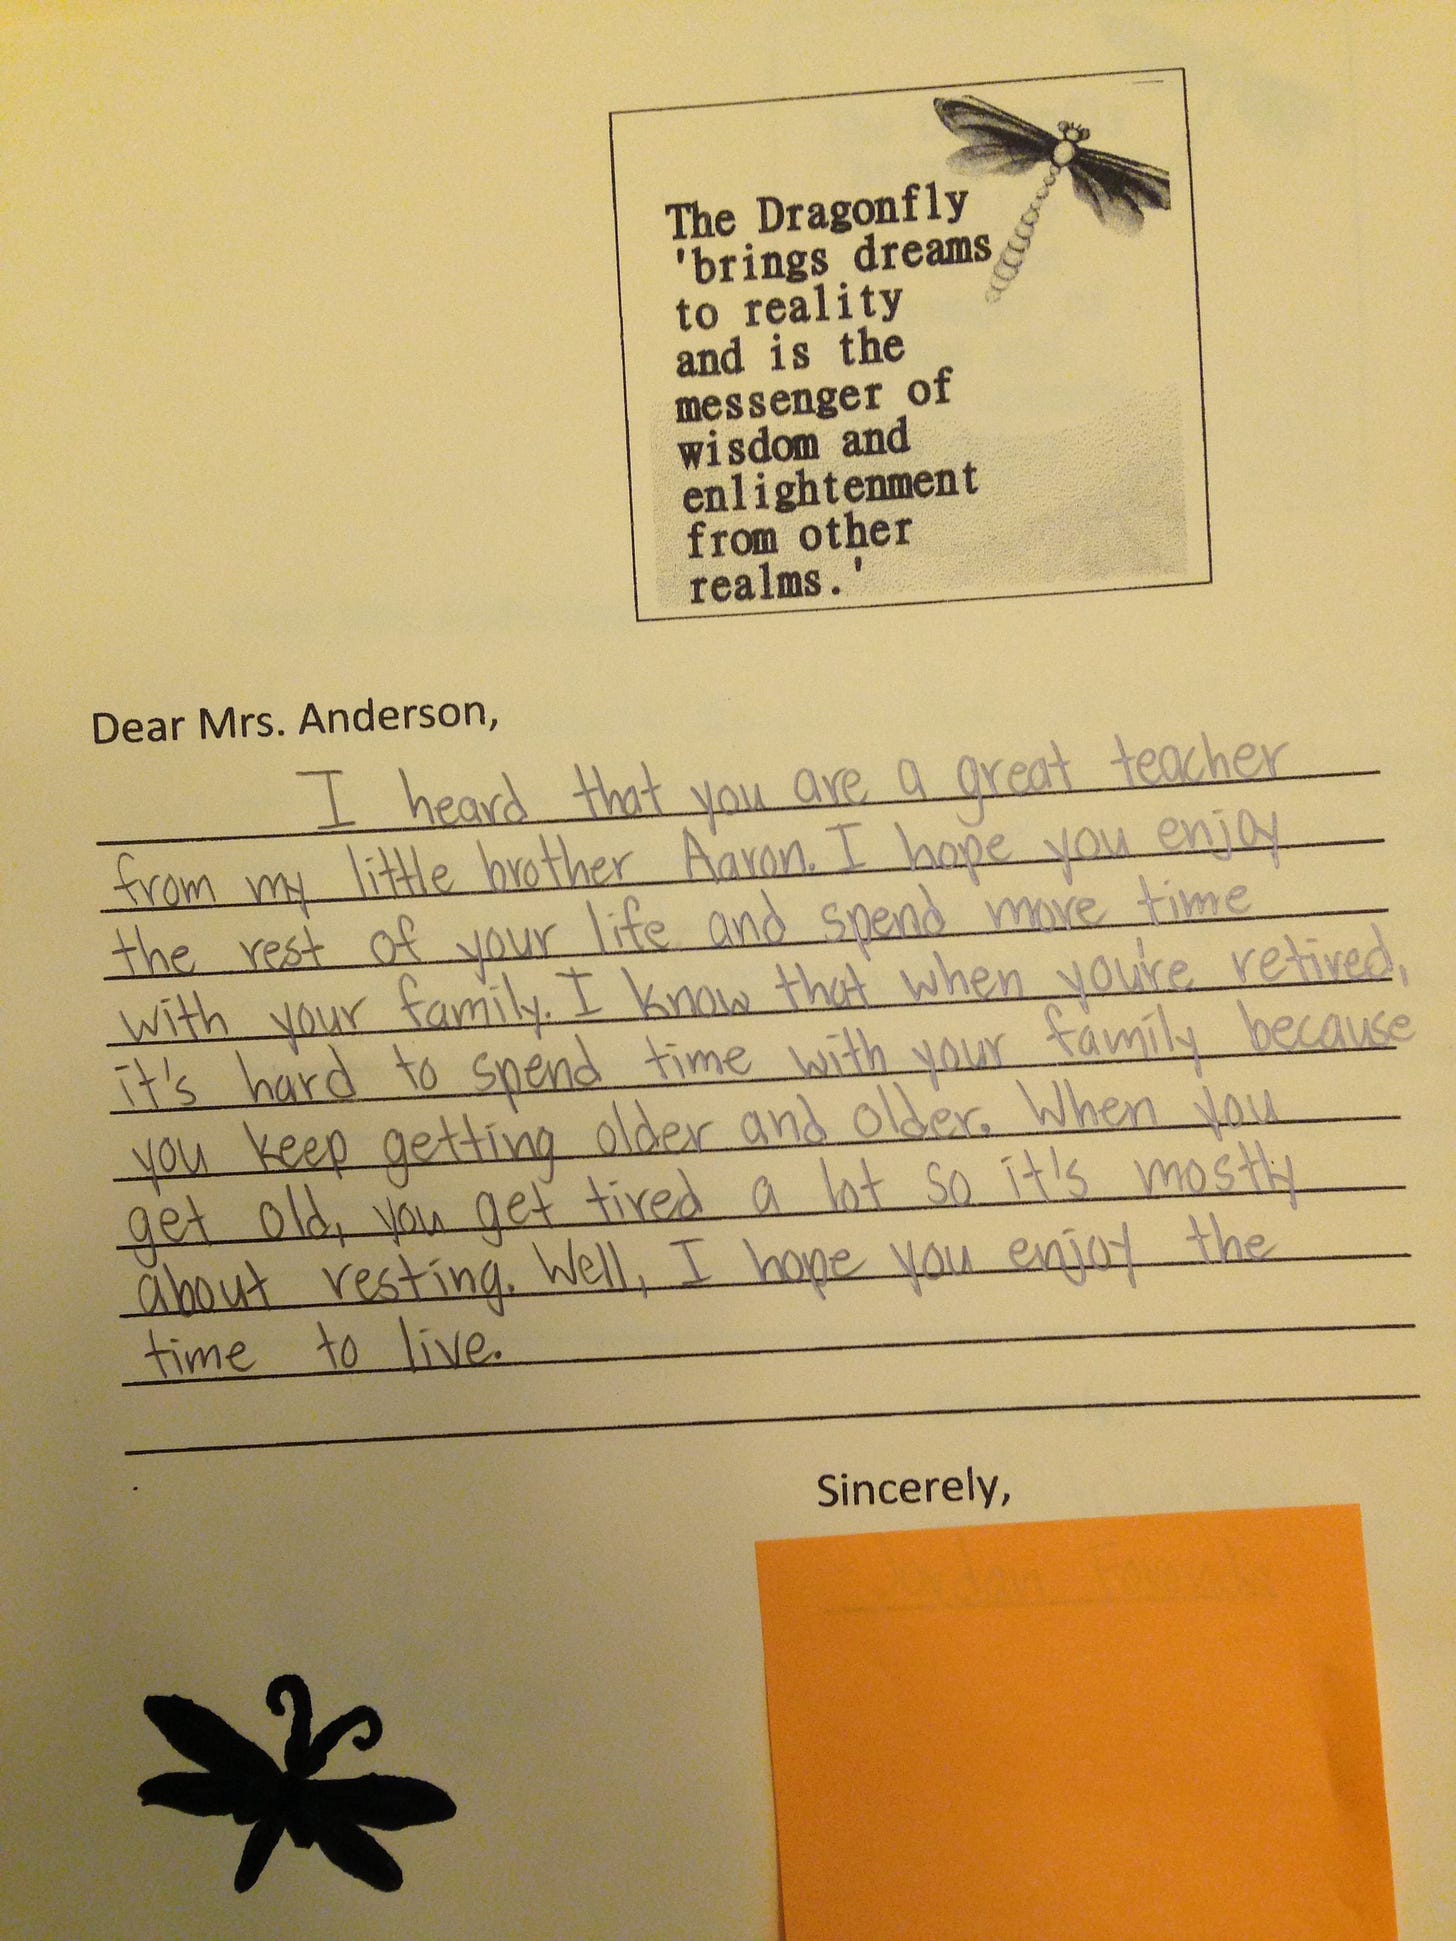 The Dragonfly
'brings dreams
to reality
and is the
messenger of
wisdom and
enlightenment
from other
realms.'
Dear Mrs. Anderson,
I heard that you are a great teacher
from my little brother Aaron. I hope you enjoy
the rest of your life and spend more time
with your family. I know that when you're retired,
it's hard to spend time with your family because
you keep getting older and older. When you
get old, you get tired a lot so it's mostly
about resting. Well, I hope you enjoy the
time to live.
Sincerely,